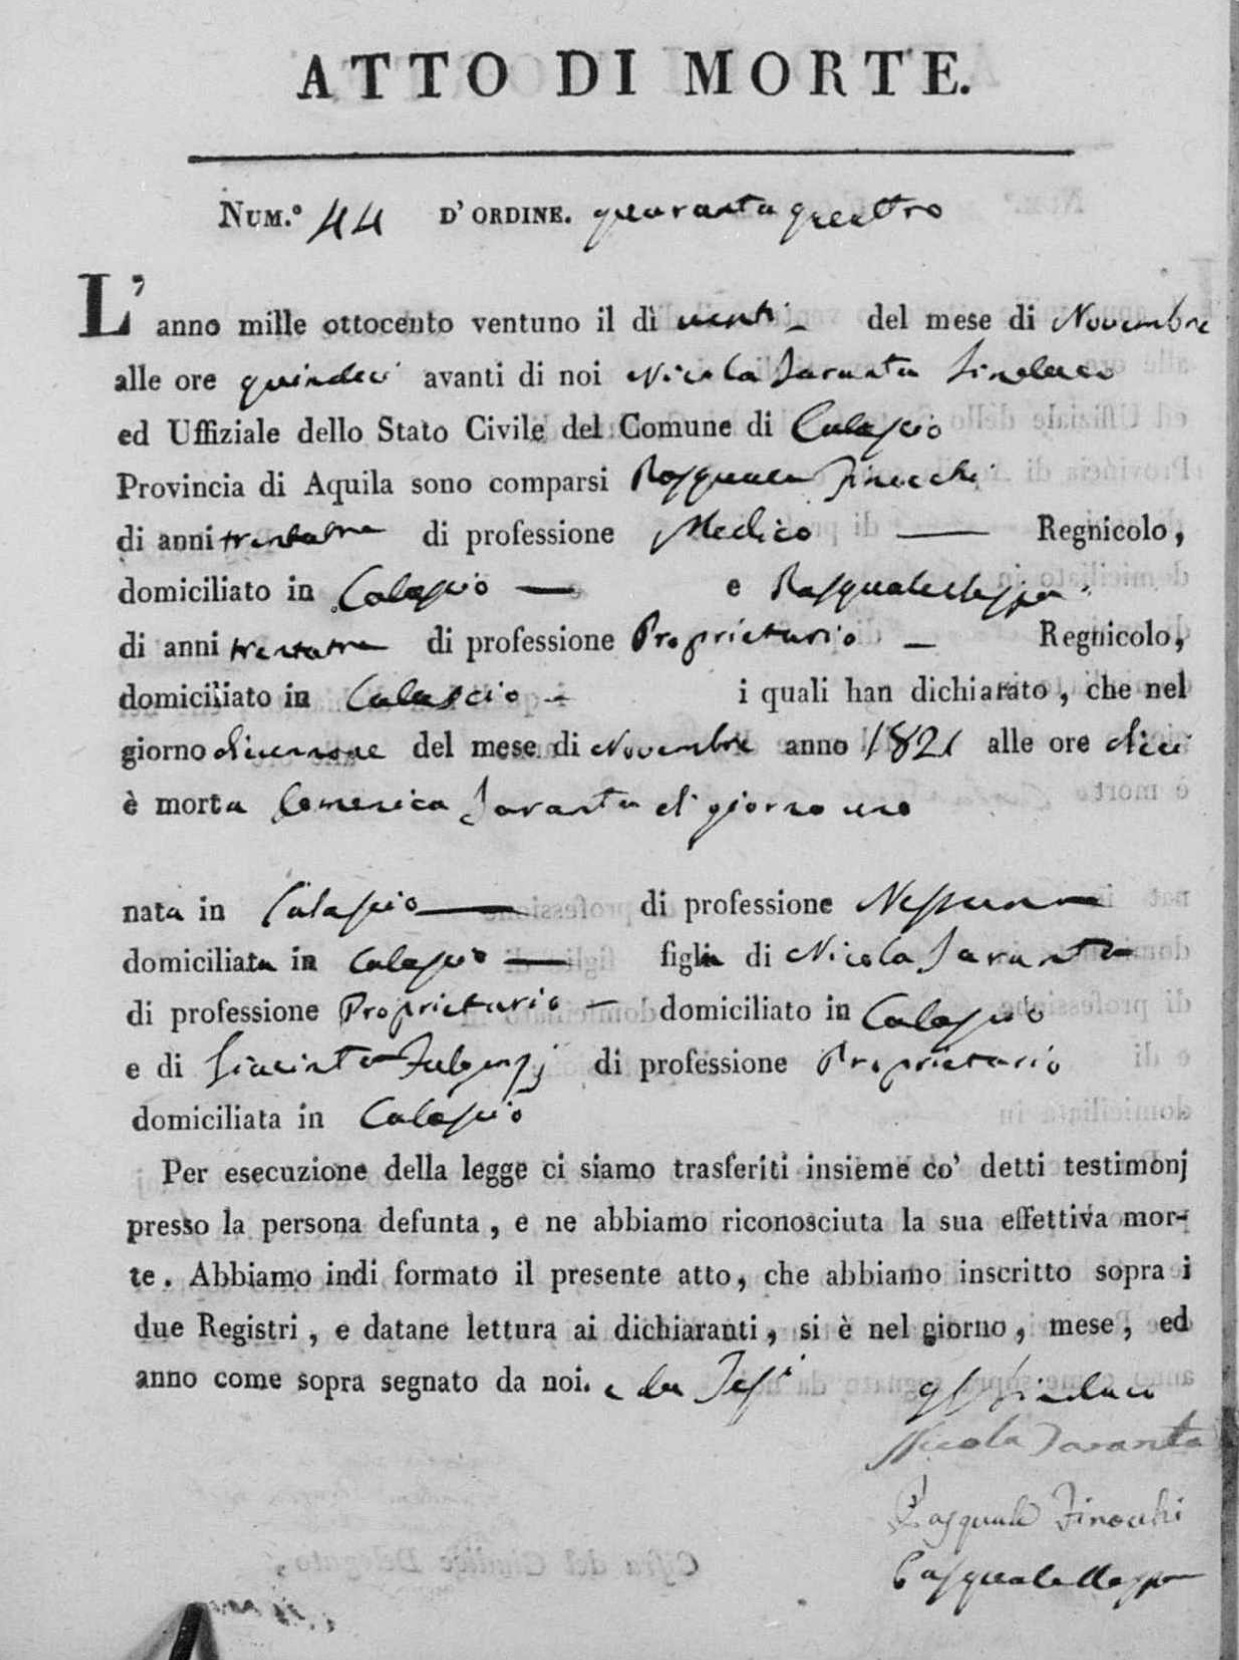 ATTO DI MORTE.
NUM.º 44 D'ORDINE. quaranta quattro
L'anno mille ottocento ventuno il dì venti del mese di Novembre
alle ore quindeci avanti di noi Nicola Taranta Sindaco
ed Uffiziale dello Stato Civile del Comune di Calascio
Provincia di Aquila sono comparsi Pasquale Finocchi
di anni trentatre di professione Medico — Regnicolo,
domiciliato in Calascio — e Pasquale
di anni trentatre di professione Proprietario — Regnicolo,
domiciliato in Calascio — i quali han dichiarato, che nel
giorno dicennove del mese di Novembre anno 1821 alle ore dieci
è morta Domenica Taranta di giorno uno
nata in Calascio — di professione Nessuna
domiciliata in Calascio — figlia di Nicola Taranta
di professione Proprietario — domiciliato in Calascio
e di Giacinta Fulgenzj di professione Proprietario
domiciliata in Calascio
Per esecuzione della legge ci siamo trasferiti insieme co' detti testimonj
presso la persona defunta, e ne abbiamo riconosciuta la sua effettiva mor-
te. Abbiamo indi formato il presente atto, che abbiamo inscritto sopra i
due Registri, e datane lettura ai dichiaranti, si è nel giorno, mese, ed
anno come sopra segnato da noi. e da Tesj Sindaco
Nicola Taranta
Pasquale Finocchi
Pasquale